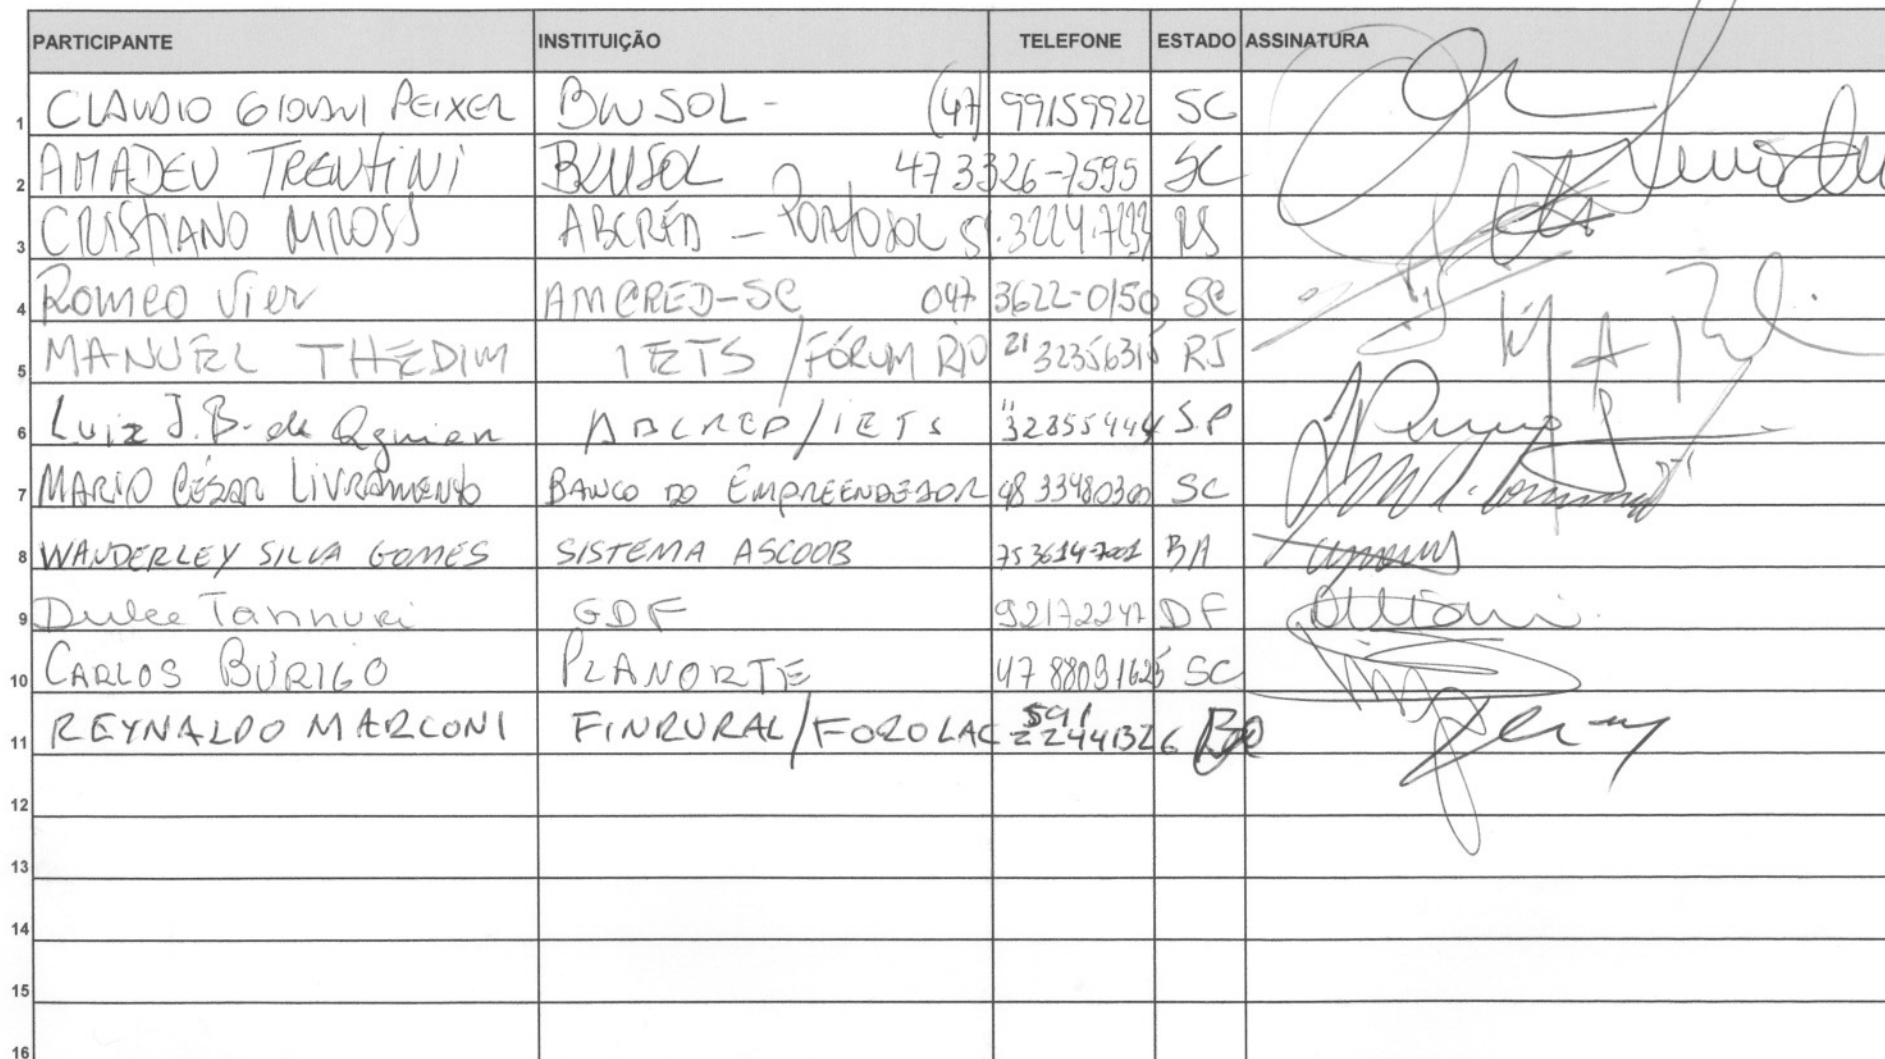 PARTICIPANTE INSTITUIÇÃO TELEFONE ESTADO ASSINATURA
1 CLAUDIO GIOVANI PEIXER BLUSOL - (47) 99159922 SC
2 AMADEU TRENTINI BLUSOL 47 3326-7595 SC
3 CRISTIANO MROSS ABCRED - PORTOSOL RS
4 Romeo Vier AMCRED-SC 047 3622-0150 SC
5 MANUEL THEDIM IETS / FÓRUM RIO 21 RJ
6 Luiz J.B. de ABCRED/IETS 11 32855444 S.P
7 MARIO CÉSAR LIVRAMENTO BANCO DO EMPREENDEDOR 48 33480300 SC
8 WANDERLEY SILVA GOMES SISTEMA ASCOOB 75 BA
9 Dulce Tannuri GDF 92172247 DF
10 CARLOS BÚRIGO PLANORTE 47 88091625 SC
11 REYNALDO MARCONI FINRURAL/FOROLAC 591 22441326 BO
12
13
14
15
16